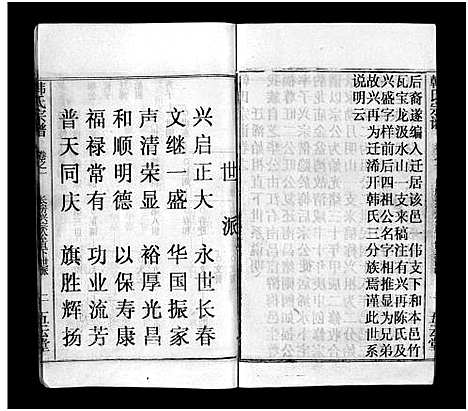 后裔遂编入迁居该邑 伟支下和本邑竹
瓦宝龙汲水山一支来稿注有兴再陈氏及
兴盛字样前后四祖公名字相推显为弟兄
故兴再为迁浠开韩氏三分族焉谨此世系
说明云
世派
兴启正大 永世长春
文继一盛 华国振家
声清荣显 裕厚光昌
和顺明德 以保寿康
福禄常有 功业流芳
普天同庆 旗胜辉扬
韩氏宗谱 卷之一
二 五云堂